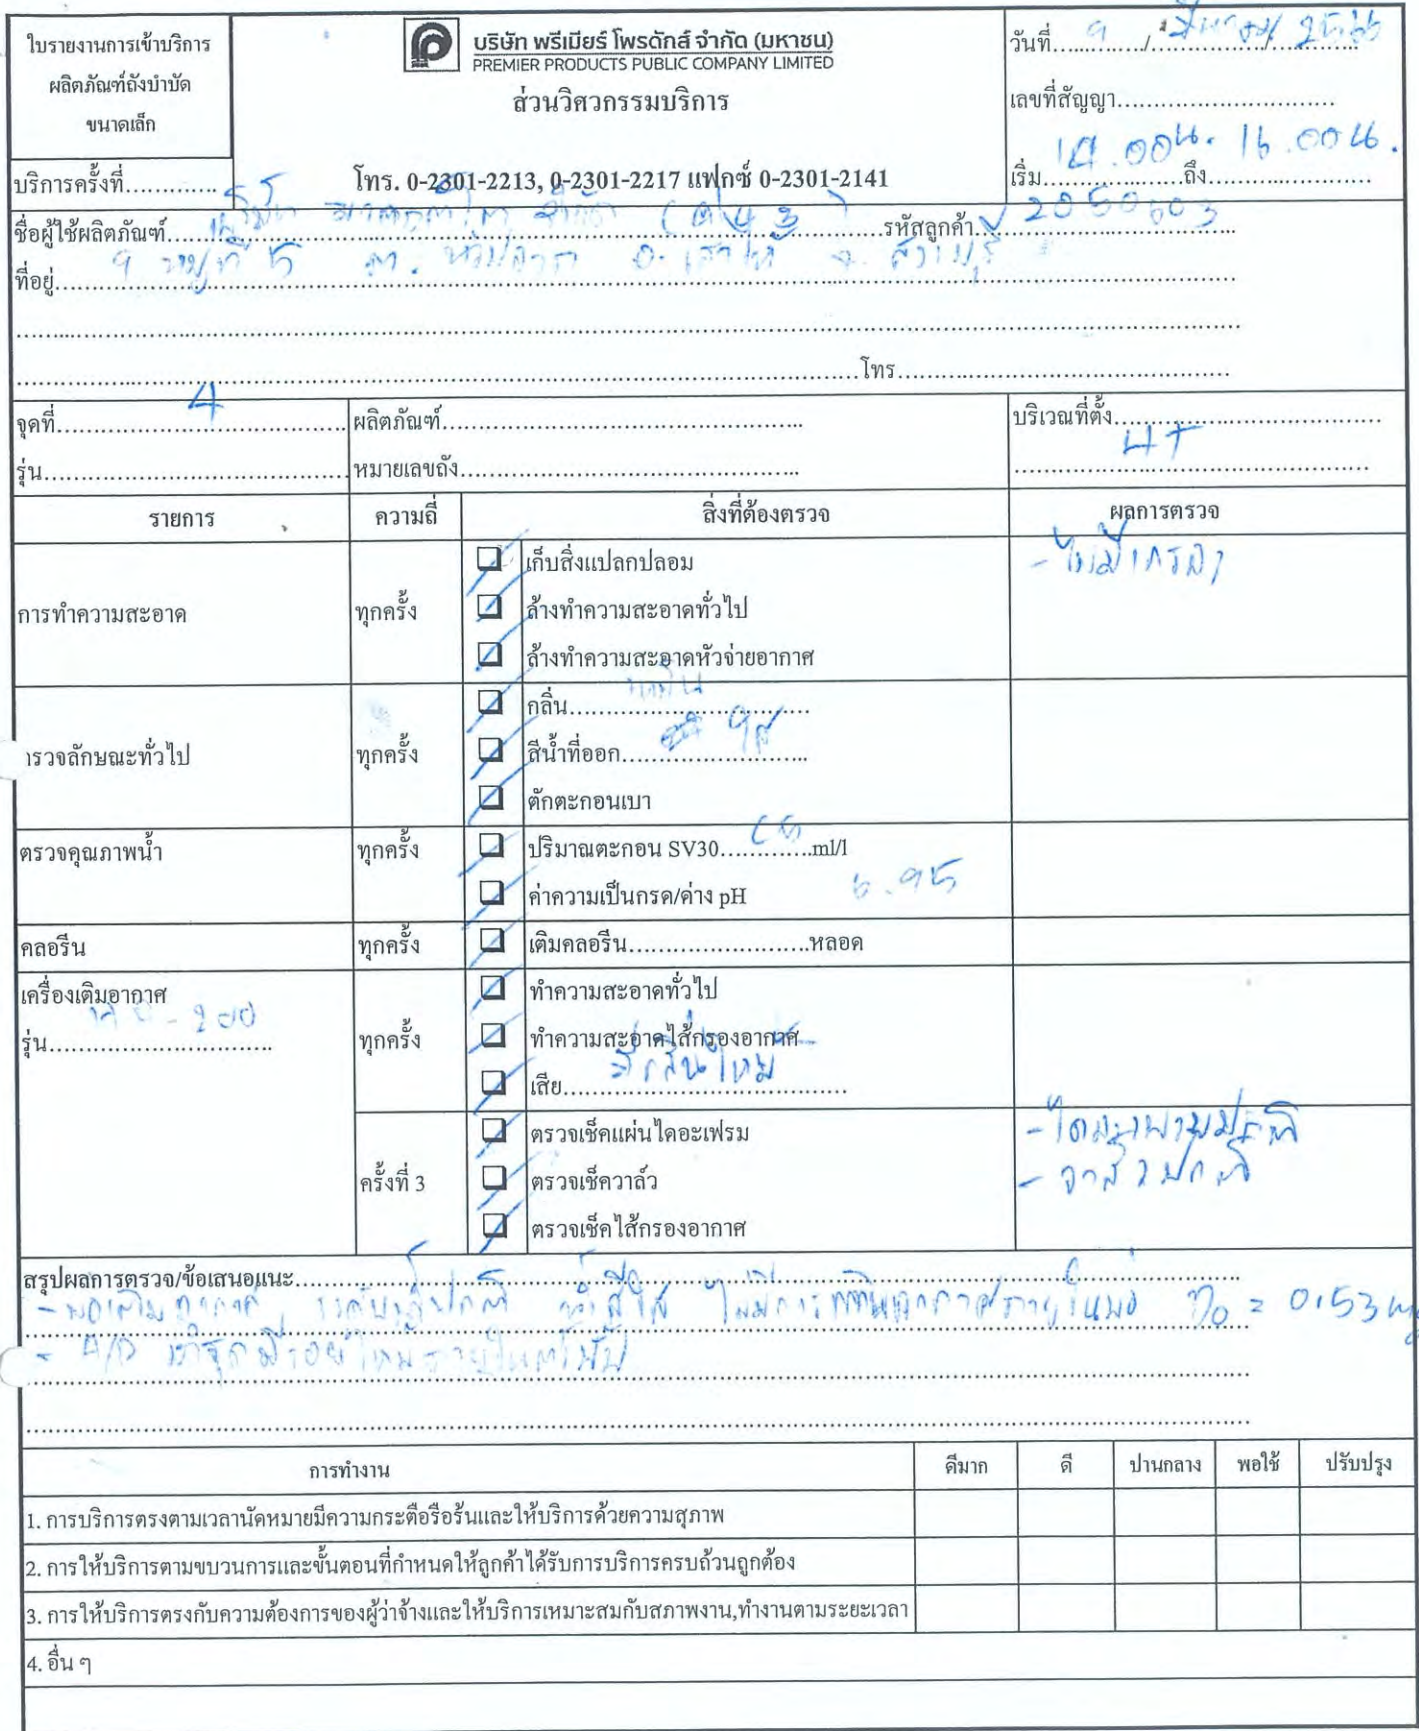 ใบรายงานการเข้าบริการ
ผลิตภัณฑ์ถังบำบัด
ขนาดเล็ก
บริษัท พรีเมียร์ โพรดักส์ จำกัด (มหาชน)
PREMIER PRODUCTS PUBLIC COMPANY LIMITED
ส่วนวิศวกรรมบริการ
โทร. 0-2301-2213, 0-2301-2217 แฟกซ์ 0-2301-2141
วันที่ 9 / /
เลขที่สัญญา
14.00น. 16.00น.
เริ่ม ถึง
บริการครั้งที่
ชื่อผู้ใช้ผลิตภัณฑ์ รหัสลูกค้า 2050603
ที่อยู่ 9 หมู่ที่ 5 อ. เสาไห้ จ. สระบุรี
โทร
จุดที่ 4 ผลิตภัณฑ์ บริเวณที่ตั้ง
รุ่น หมายเลขถัง 4T
รายการ ความถี่ สิ่งที่ต้องตรวจ ผลการตรวจ
การทำความสะอาด ทุกครั้ง
เก็บสิ่งแปลกปลอม
ล้างทำความสะอาดทั่วไป
ล้างทำความสะอาดหัวจ่ายอากาศ
ตรวจลักษณะทั่วไป ทุกครั้ง
กลิ่น
สีน้ำที่ออก ใส
ตักตะกอนเบา
ตรวจคุณภาพน้ำ ทุกครั้ง
ปริมาณตะกอน SV30 ml/l
ค่าความเป็นกรด/ค่าง pH 6.95
คลอรีน ทุกครั้ง เติมคลอรีน หลอด
เครื่องเติมอากาศ
รุ่น -200 ทุกครั้ง
ทำความสะอาดทั่วไป
ทำความสะอาดไส้กรองอากาศ
เสีย
ครั้งที่ 3
ตรวจเช็คแผ่นไดอะเฟรม
ตรวจเช็ควาล์ว
- วาล์วปกติ
ตรวจเช็คไส้กรองอากาศ
สรุปผลการตรวจ/ข้อเสนอแนะ
- บ่อเติมอากาศ น้ำสีใส ไม่มีการ = 0.53
การทำงาน ดีมาก ดี ปานกลาง พอใช้ ปรับปรุง
1. การบริการตรงตามเวลานัดหมายมีความกระตือรือร้นและให้บริการด้วยความสุภาพ
2. การให้บริการตามขบวนการและขั้นตอนที่กำหนดให้ลูกค้าได้รับการบริการครบถ้วนถูกต้อง
3. การให้บริการตรงกับความต้องการของผู้ว่าจ้างและให้บริการเหมาะสมกับสภาพงาน,ทำงานตามระยะเวลา
4. อื่น ๆ